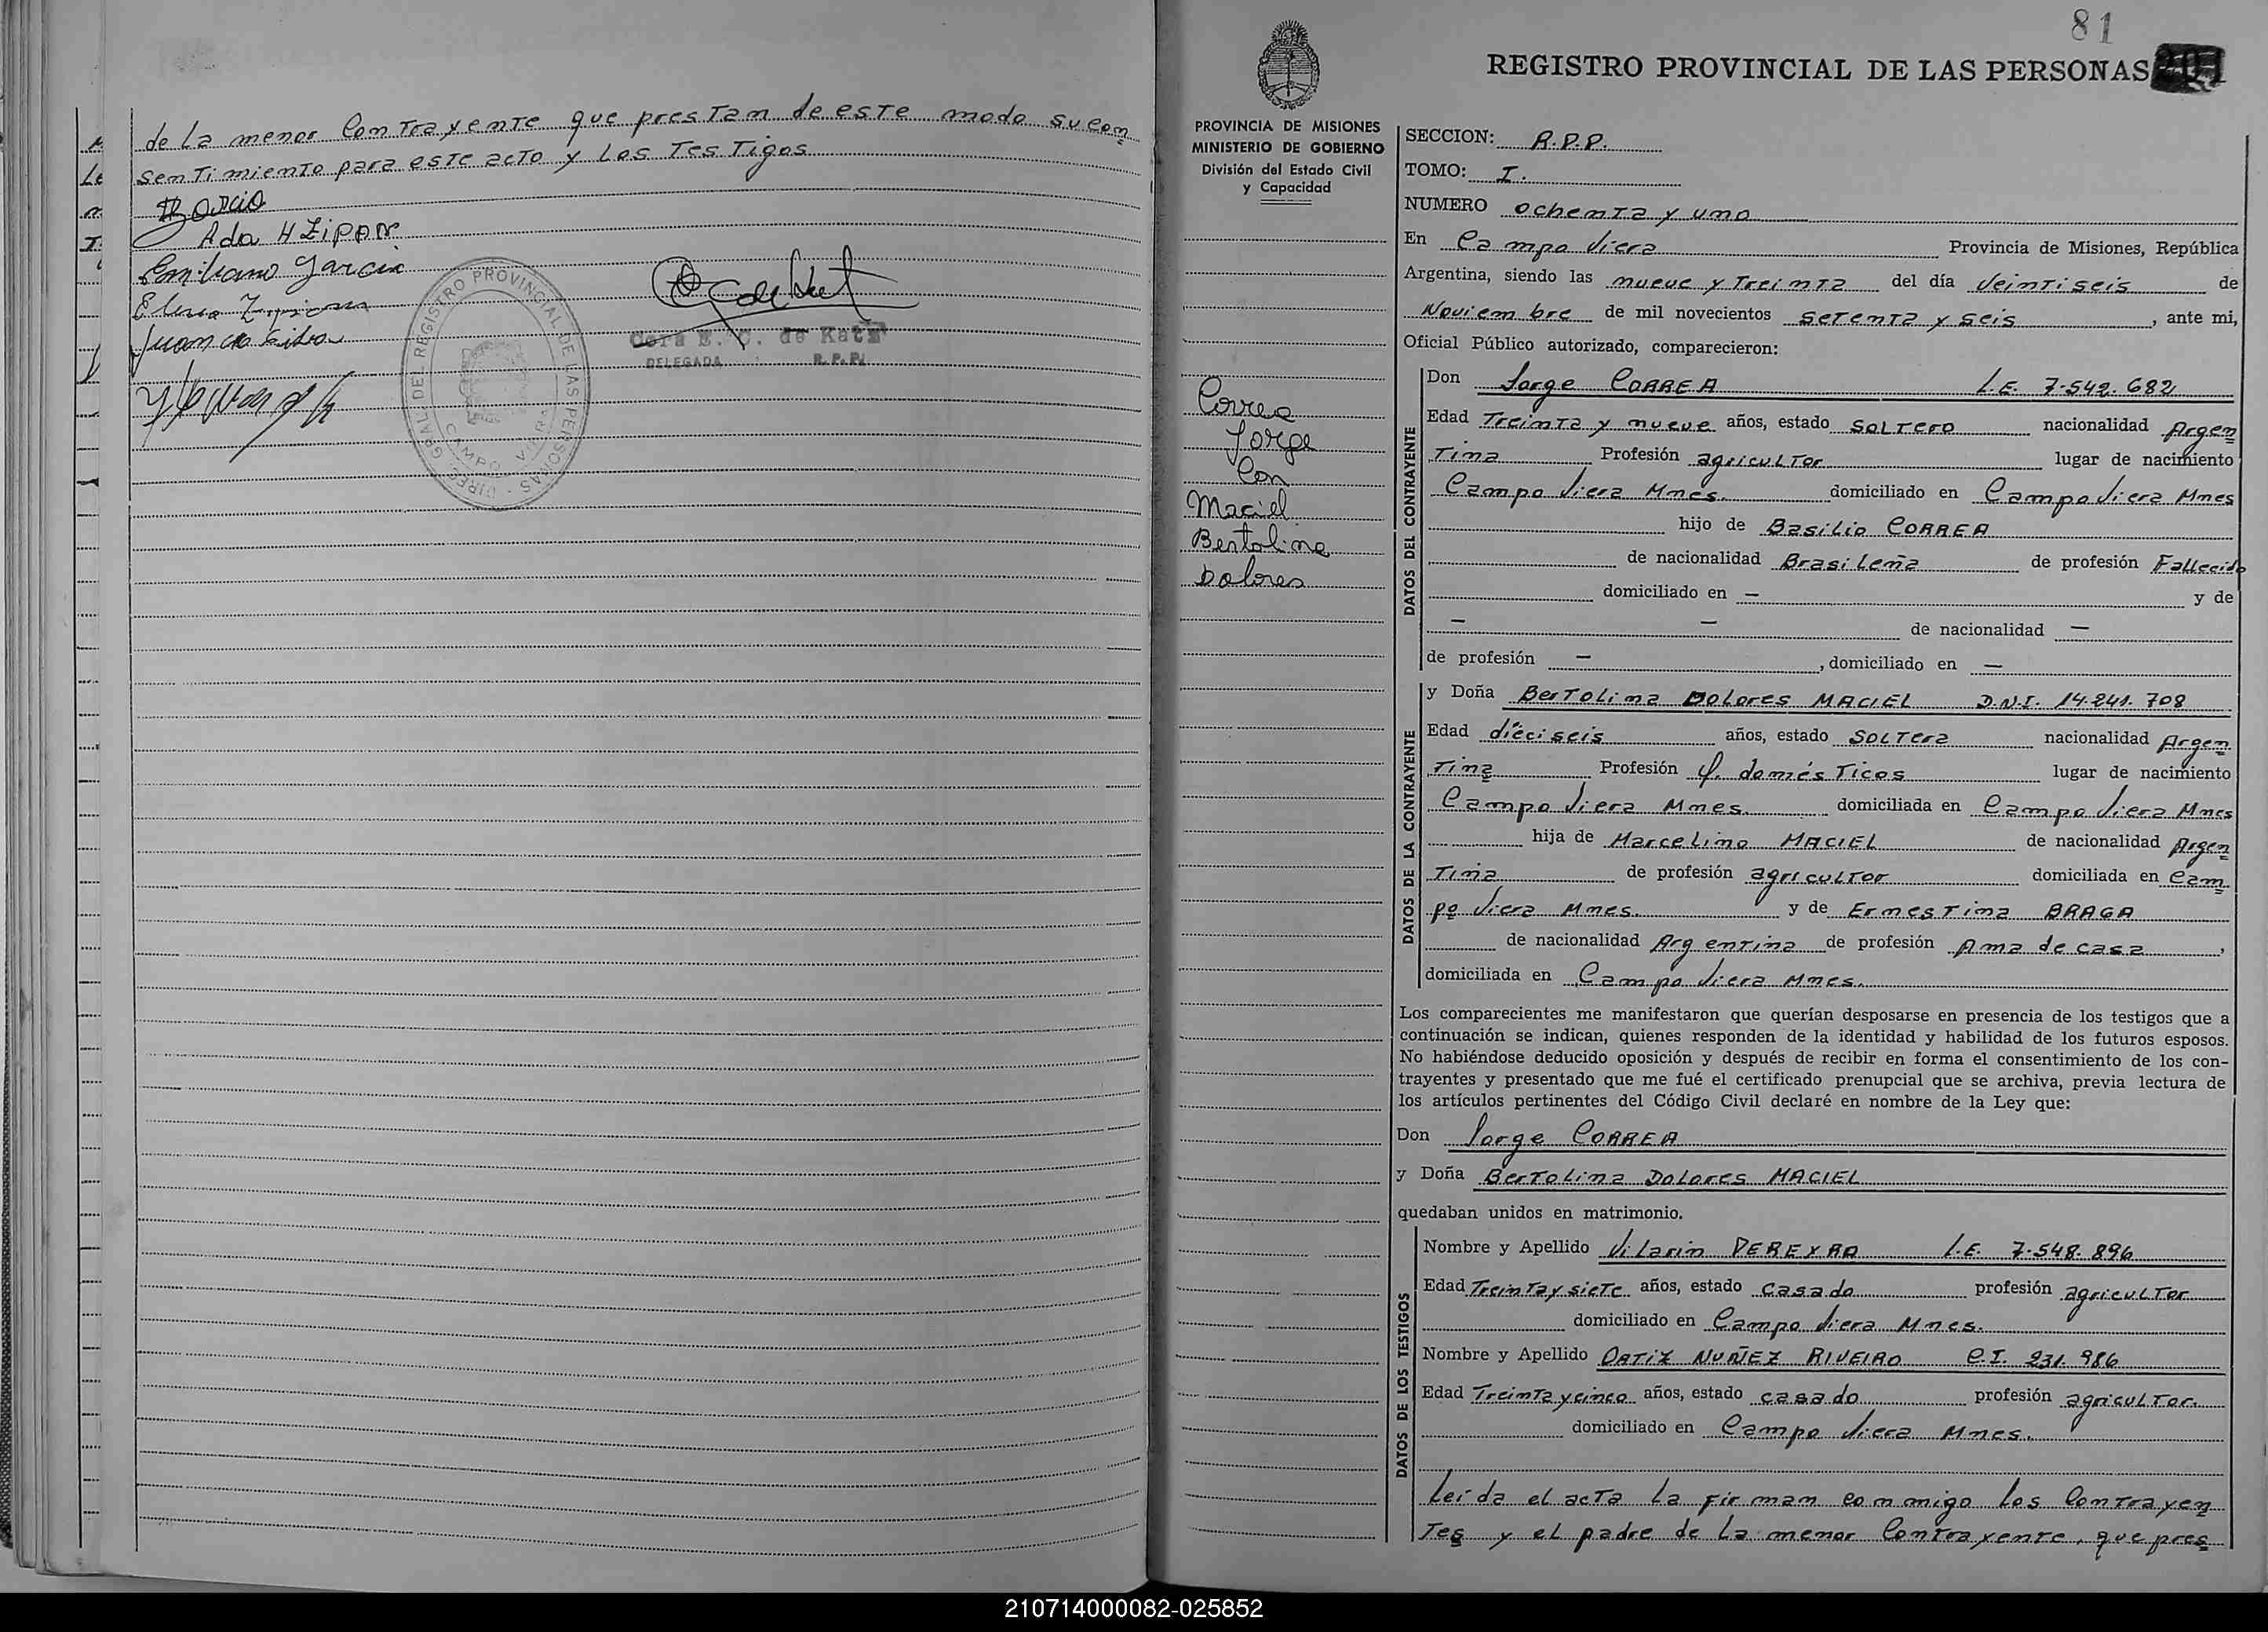 de la menor Contrayente que prestan de este modo su con
sentimiento para este acto y los Testigos
Ada H Zipan
Emiliano Garcia
Elena
Juan
DIREC. GRAL. DEL REGISTRO PROVINCIAL DE LAS PERSONAS
CAMPO VIERA
Cora E. C. de
DELEGADA R.P.P.
81
REGISTRO PROVINCIAL DE LAS PERSONAS
PROVINCIA DE MISIONES
MINISTERIO DE GOBIERNO
División del Estado Civil
y Capacidad
Correa
Jorge
Con
Maciel
Bertolina
Dolores
SECCION: R.P.P.
TOMO: I.
NUMERO ochenta y uno
En Campo Viera Provincia de Misiones, República
Argentina, siendo las nueve y Treinta del día Veintiseis de
Noviembre de mil novecientos setenta y seis, ante mi,
Oficial Público autorizado, comparecieron:
DATOS DEL CONTRAYENTE
Don Jorge CORREA L.E. 7.542.682
Edad Treinta y nueve años, estado soltero nacionalidad Argen
Tina Profesión agricultor lugar de nacimiento
Campo Viera Mnes. domiciliado en Campo Viera Mnes
hijo de Basilio CORREA
de nacionalidad Brasileña de profesión Fallecido
domiciliado en — y de
— — de nacionalidad —
de profesión —, domiciliado en —
DATOS DE LA CONTRAYENTE
y Doña Bertolina Dolores MACIEL D.N.I. 14.241.708
Edad dieciseis años, estado soltera nacionalidad Argen
Tina Profesión Q. domésticos lugar de nacimiento
Campo Viera Mnes. domiciliada en Campo Viera Mnes
hija de Marcelino MACIEL de nacionalidad Argen
Tina de profesión agricultor domiciliada en Cam
po Viera Mnes. y de Ernestina BRAGA
de nacionalidad Argentina de profesión Ama de casa,
domiciliada en Campo Viera Mnes.
Los comparecientes me manifestaron que querían desposarse en presencia de los testigos que a
continuación se indican, quienes responden de la identidad y habilidad de los futuros esposos.
No habiéndose deducido oposición y después de recibir en forma el consentimiento de los con-
trayentes y presentado que me fué el certificado prenupcial que se archiva, previa lectura de
los artículos pertinentes del Código Civil declaré en nombre de la Ley que:
Don Jorge CORREA
y Doña Bertolina Dolores MACIEL
quedaban unidos en matrimonio.
DATOS DE LOS TESTIGOS
Nombre y Apellido Vilarin PEREYRA L.E. 7.548.896
Edad Treinta y siete años, estado casado profesión agricultor
domiciliado en Campo Viera Mnes.
Nombre y Apellido ORTIZ NUÑEZ RIVEIRO C.I. 231.986
Edad Treinta y cinco años, estado casado profesión agricultor.
domiciliado en Campo Viera Mnes.
Leída el acta la firman conmigo los Contrayen
Tes y el padre de la menor Contrayente, que pres
210714000082-025852